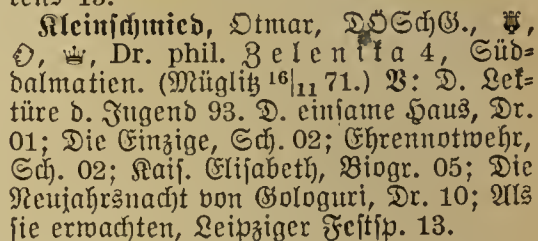 Kleinschmied, Otmar, DÖSchG.,
Dr. phil. Zelenika 4, Süd=
dalmatien. (Müglitz 16|11 71.) V: D. Lek=
türe d. Jugend 93. D. einsame Haus, Dr.
01; Die Einzige, Sch. 02; Ehrennotwehr,
Sch. 02; Kais. Elisabeth, Biogr. 05; Die
Neujahrsnacht von Gologuri, Dr. 10; Als
sie erwachten, Leipziger Festsp. 13.